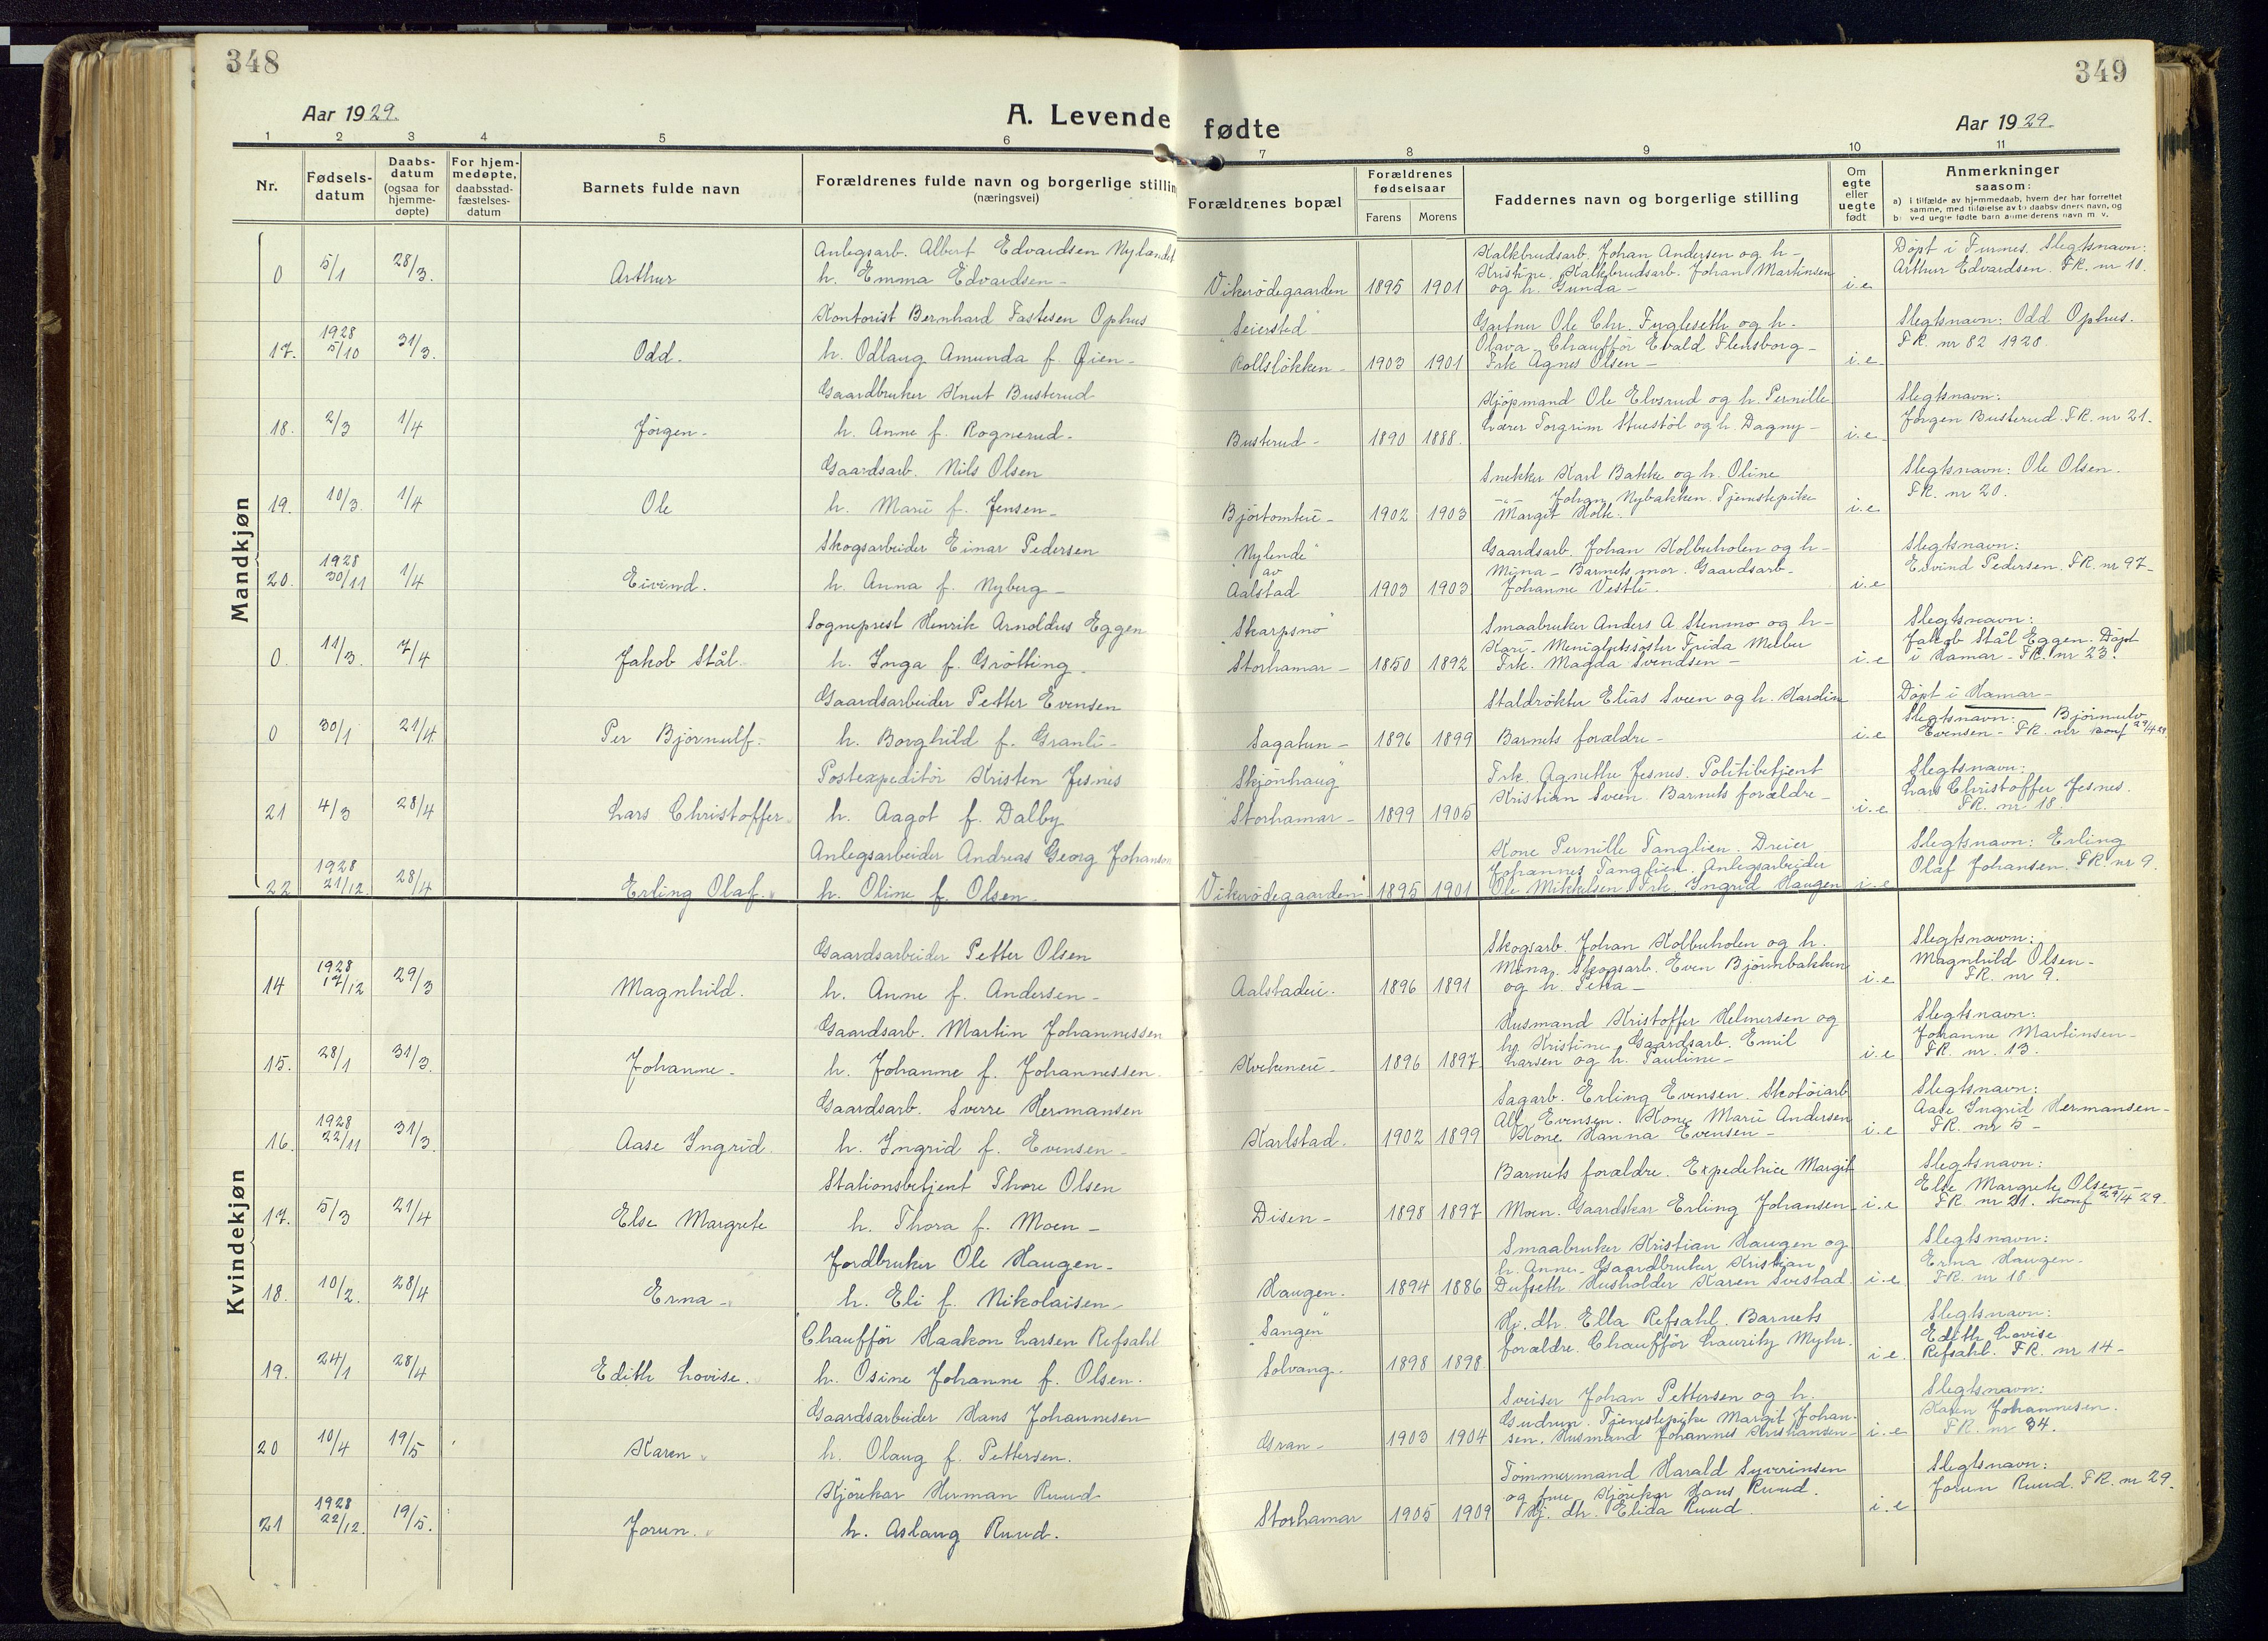 348
349
Aar 1929.
A. Levende fødte
Aar 1929.
1 2 3 4 5 6 7 8 9 10 11
Nr.
Fødsels-
datum
Daabs-
datum
(ogsaa for
hjemme-
døpte)
For hjem-
medøpte,
daabsstad-
fæstelses-
datum
Barnets fulde navn
Forældrenes fulde navn og borgerlige stillin
(næringsvei)
Forældrenes bopæl
Forældrenes
fødselsaar
Farens Morens
Faddernes navn og borgerlige stilling
Om
egte
eller
uegte
født
Anmerkninger
saasom:
a) i tilfælde av hjemmedaab, hvem der har forrettet
samme, med tilføielse av to daabsvidners navn, og
b) ved uegte fødte barn anmelderens navn m. v.
Mandkjøn
Anlegsarb. Albert Edvardsen Nylandet
0 5/1 28/3. Arthur h. Emma Edvardsen -
Vikerødegaarden 1895 1901
Kalkbrudsarb. Johan Andersen og h-
Kristine. Kalkbrudsarb. Johan Martinsen
og h. Gunda -
i.e.
Døpt i Furnes. Slegtsnavn:
Arthur Edvardsen. FR. nr 10.
Kontorist Bernhard Tastesen Ophus
17. 1928 5/10 31/3. Odd. h. Odlaug Amunda f. Øien -
"Seiersted"
Rollsløkken - 1903 1901
Gartner Ole Chr. Fugleseth og h.
Olava - Chauffør Evald Flensborg -
Frk Agnes Olsen -
i.e
Slegtsnavn: Odd Ophus.
FR. nr 82 1928.
Gaardbruker Knut Busterud
18. 2/3 1/4 Jörgen - h. Anne f. Rognerud -
Busterud - 1890 1888.
Kjøpmand Ole Elvsrud og h. Pernille
Lærer Torgrim Stuestöl og h. Dagny -
i.e
Slegtsnavn:
Jørgen Busterud. FR. nr 21.
Gaardsarb. Nils Olsen
19. 10/3. 1/4 Ole h. Marie f. Jensen -
Bjørtomteie - 1902 1903
Snekker Karl Bakke og h. Oline
-"- Johan Nybakken. Tjenestepike
Margit Holte.
i.e
Slegtsnavn: Ole Olsen.
FR. nr 20.
Skogsarbeider Einar Pedersen
20. 1928 30/11 1/4 Eivind. h. Anna f. Nyberg -
"Nylende"
av
Aalstad 1903 1903
Gaardsarb. Johan Kolbuholen og h-
Mina - Barnets mor. Gaardsarb-
Johanne Vestli.
i.e
Slegtsnavn:
Eivind Pedersen. FR. nr 97-
Sogneprest Henrik Arnoldus Eggen
0. 11/3. 7/4 Jakob Stål. h. Inga f. Grötting -
"Skarpsno"
Storhamar - 1850 1892
Smaabruker Anders A. Stenmo og h-
Kari - Menighetssøster Frida Melbu
Frk. Magda Svendsen -
i.e
Slegtsnavn:
Jakob Stål Eggen. Döpt
i Hamar - FR. nr 23.
Gaardsarbeider Petter Evensen
0 30/1 21/4. Per Björnulf - h. Borghild f. Granli -
Sagatun - 1896 1899
Staldrøkter Elias Sveen og h. Kardine
Barnets forældre -
i.e
Döpt i Hamar -
Slegtsnavn: Björnulv
Evensen - FR. nr konf 29/4 29
Postexpeditör Kristen Jesnes
21 4/3 28/4 Lars Christoffer h. Aagot f. Dalby
"Skjönhaug"
Storhamar - 1899 1905
Frk. Agnethe Jesnes. Politibetjent
Kristian Sveen. Barnets forældre -
i.e
Slegtsnavn:
Lars Christoffer Jesnes.
FR. nr 18.
Anlegsarbeider Andreas Georg Johansen
22 1928 21/12. 28/4 Erling Olaf. h. Oline f. Olsen -
Vikerødegaarden 1895 1901
Kone Pernille Tanglien. Dreier
Johannes Tanglien. Anlegsarbeider
Ole Mikkelsen. Frk. Ingrid Haugen
i.e
Slegtsnavn: Erling
Olaf Johansen. FR. nr 9.
Kvindekjøn
Gaardsarbeider Petter Olsen
14 1928 17/12 29/3 Magnhild. h. Anne f. Andersen -
Aalstadeie. 1896 1891
Skogsarb. Johan Kolbuholen og h.
Mina. Skogsarb. Even Björnbakken
og h. Petra -
i.e
Slegtsnavn:
Magnhild Olsen -
FR. nr 9.
Gaardsarb. Martin Johannessen
15. 28/1 31/3. Johanne - h. Johanne f. Johannessen
1896 1897
Husmand Kristoffer Helmersen og
h. Kristine - Gaardsarb. Emil
Larsen og h. Pauline -
i.e
Slegtsnavn:
Johanne Martinsen -
FR. nr. 13.
Gaardsarb. Sverre Hermansen
16. 1928 22/11 31/3. Aase Ingrid h. Ingrid f. Evensen -
Karlstad. 1902 1899
Sagarb. Erling Evensen. Skotöiarb
Alf Evensen. Kone Marie Andersen
Kone Hanna Evensen -
i.e
Slegtsnavn:
Aase Ingrid Hermansen -
FR. nr 5 -
Stationsbetjent Thore Olsen
17. 5/3 21/4 Else Margrete h. Thora f. Moen -
Disen - 1898 1897
Barnets forældre. Expeditrice Margit
Moen. Gaardskar Erling Johansen
i.e
Slegtsnavn:
Else Margrete Olsen -
FR nr 21. konf 29/4 29.
Jordbruker Ole Haugen -
18. 10/2. 28/4 Erna - h. Eli f. Nikolaisen -
Haugen. 1894 1886
Smaabruker Kristian Haugen og
h. Anne - Gaardbruker Kristian
Dufseth. Husholder Karen Svestad.
i.e
Slegtsnavn:
Erna Haugen -
FR. nr 18
Chauffør Haakon Larsen Refsahl
19. 24/1 28/4 Edith Lovise. h. Osine Johanne f. Olsen.
"Sangen"
Solvang. 1898 1898.
Hj. dtr. Ella Refsahl. Barnets
forældre. Chauffør Lauritz Myhr.
i.e.
Slegtsnavn:
Edith Lovise
Refsahl. FR. nr 14 -
Gaardsarbeider Hans Johannesen
20 10/4 19/5 Karen h. Olaug f. Pettersen.
Gran - 1903 1904
Sveiser Johan Pettersen og h.
Gudrun. Tjenestepike Margit Johan-
sen. Husmand Johannes Kristiansen -
i.e
Slegtsnavn:
Karen Johannesen.
FR. nr 34.
Kjörekar Herman Ruud
21 1928 22/12. 19/5. Jorun. h. Aslaug Ruud.
Storhamar 1905 1909
Tömmermand Harald Syverinsen
og frue. Kjörekar Hans Ruud.
Hj. dtr. Elida Ruud.
i.e
Slegtsnavn:
Jorun Ruud. FR. nr 29.